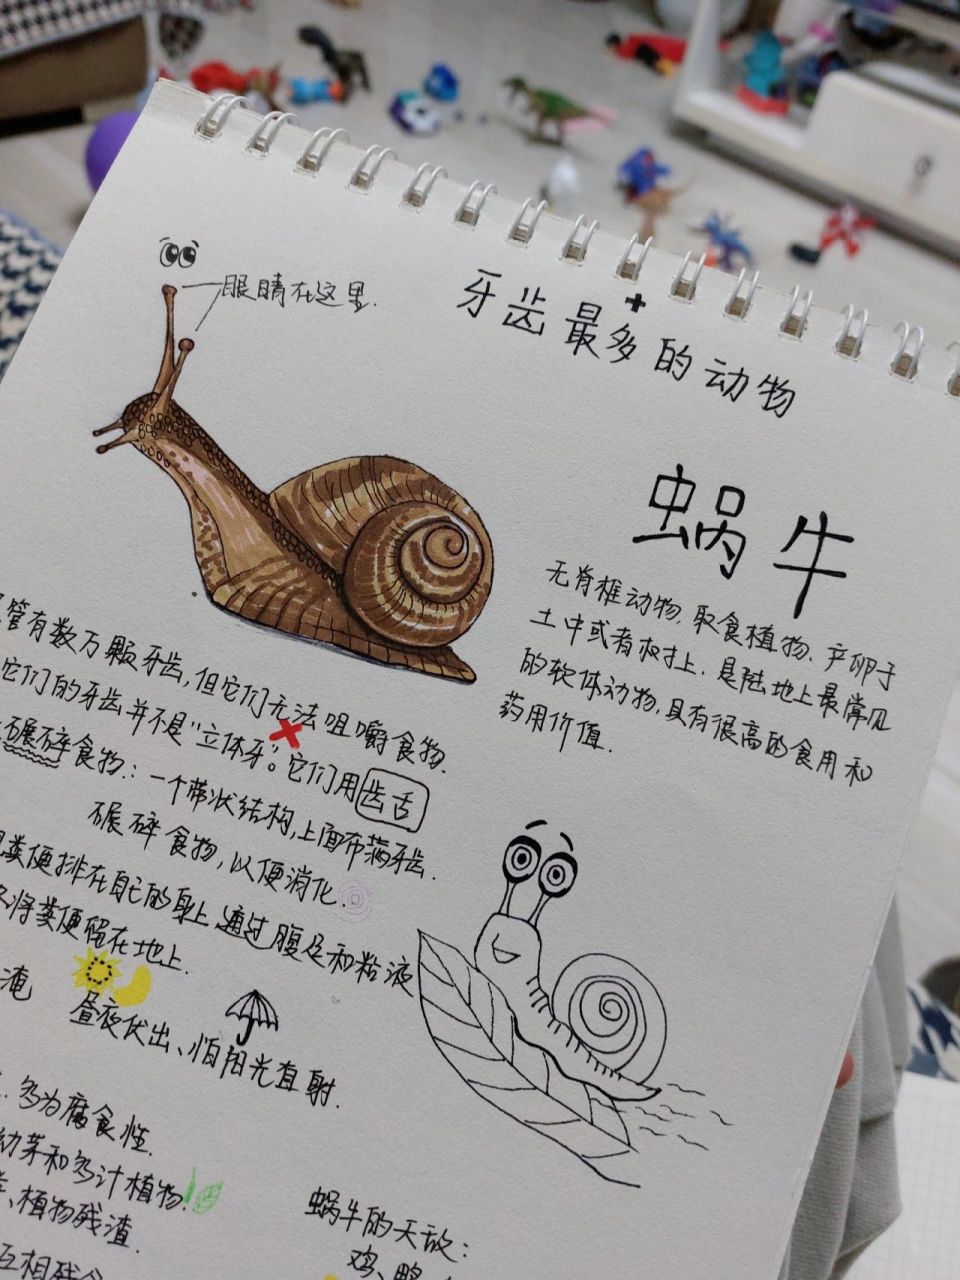 眼睛在这里.
牙齿最多的动物
蜗牛
无脊椎动物.取食植物.产卵于
土中或者树上.是陆地上最常见
的软体动物.具有很高的食用和
药用价值.
管有数万颗牙齿,但它们无法咀嚼食物.
它们的牙齿并不是"立体牙"。它们用齿舌
碾碎食物.:一个带状结构,上面布满牙齿.
碾碎食物,以便消化.
粪便排在自己的身上,通过腹足和粘液
将粪便留在地上.
昼夜伏出、怕阳光直射.
多为腐食性.
幼芽和多汁植物.
、植物残渣.
互相残食
蜗牛的天敌:
鸡、鸭